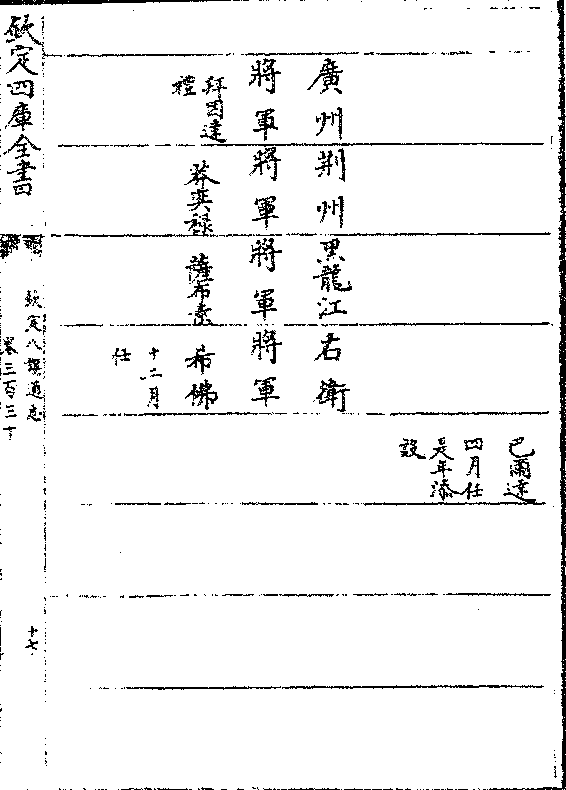 巴爾達
四月任
是年添
設
廣州
將軍
拜音達
禮
荆州
將軍
莽奕禄
黒龍江
將軍
薩布素
右衛
將軍
希佛
十二月
任
欽定四庫全書
欽定八旗通志
卷三百三十
十七